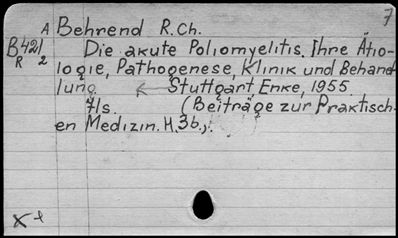 7
A Behrend R.Ch.
B421 Die akute Poliomyelitis. Ihre Ätio-
R 2
logie, Pathogenese, Klinik und Behand-
lung. Stuttgart, Enke, 1955.
(Beiträge zur Praktisch-
en Medizin. H. 36.).